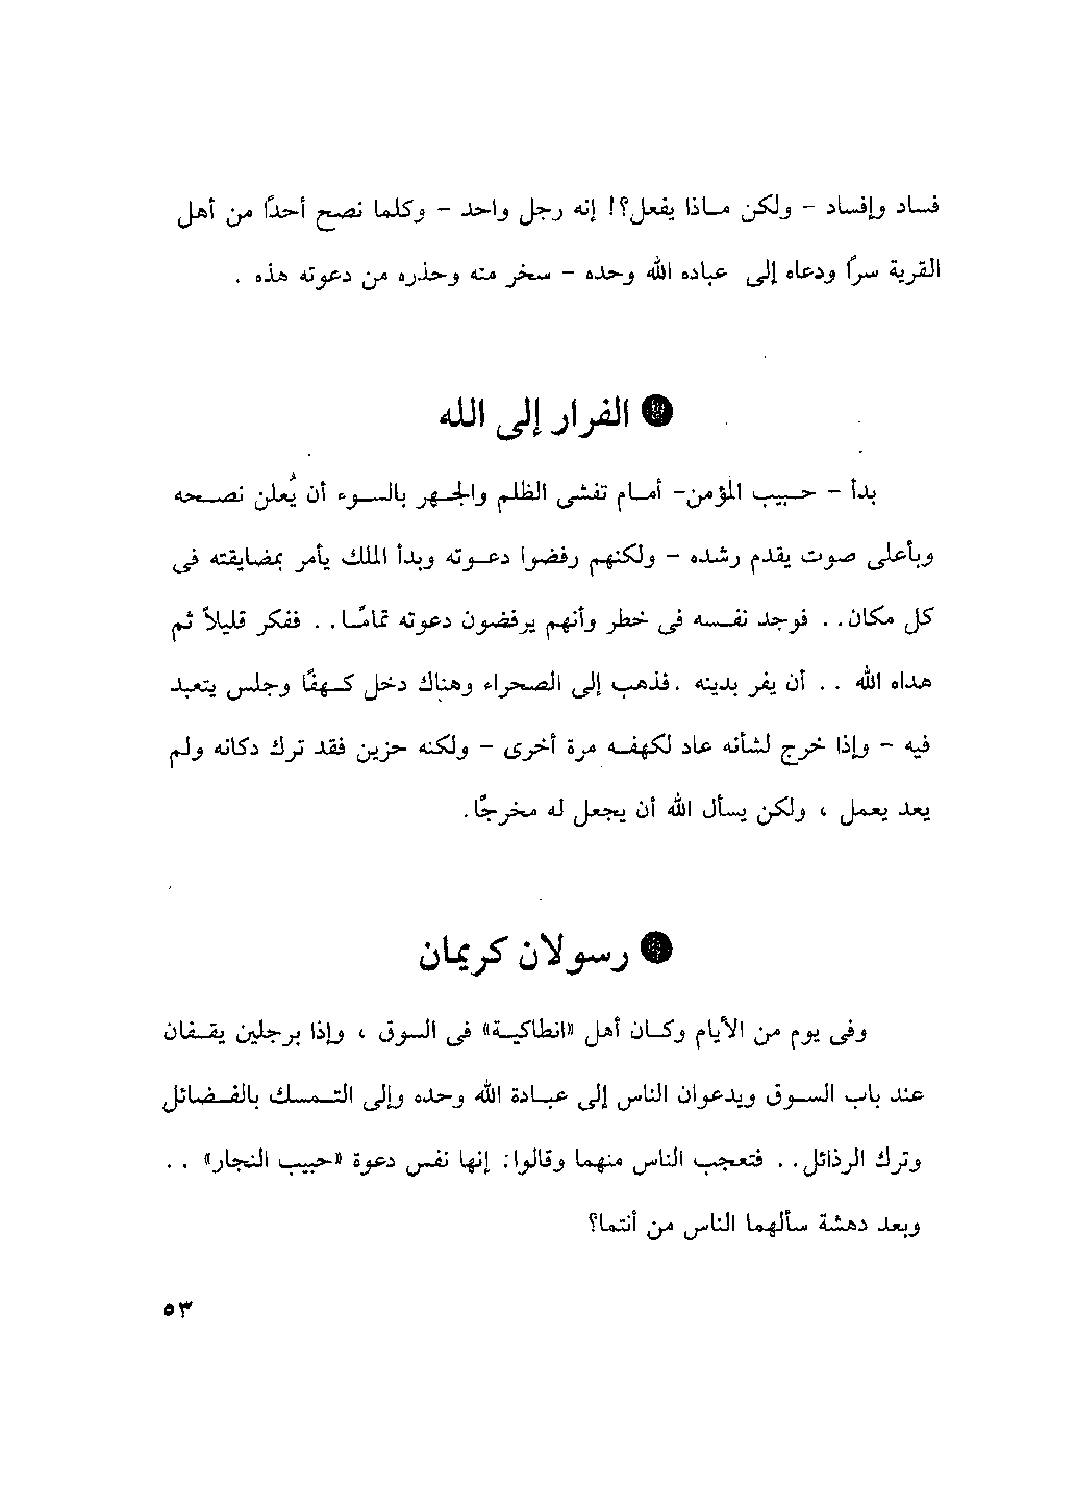 فساد وإفساد - ولكن ماذا يفعل؟! إنه رجل واحد - وكلما نصح أحدًا من أهل
القرية سرًا ودعاه إلى عباده الله وحده - سخر منه وحذره من دعوته هذه .
الفرار إلى الله
بدأ - حبيب المؤمن- أمام تفشى الظلم والجهر بالسوء أن يُعلن نصحه
وبأعلى صوت يقدم رشده - ولكنهم رفضوا دعوته وبدأ الملك يأمر بمضايقته فى
كل مكان. . فوجد نفسه فى خطر وأنهم يرفضون دعوته تمامًا. . ففكر قليلاً ثم
هداه الله . . أن يفر بدينه .فذهب إلى الصحراء وهناك دخل كهفًا وجلس يتعبد
فيه - وإذا خرج لشأنه عاد لكهفه مرة أخرى - ولكنه حزين فقد ترك دكانه ولم
يعد يعمل ، ولكن يسأل الله أن يجعل له مخرجًا.
رسولان كريمان
وفى يوم من الأيام وكان أهل «انطاكية» فى السوق ، وإذا برجلين يقفان
عند باب السوق ويدعوان الناس إلى عبادة الله وحده وإلى التمسك بالفضائل
وترك الرذائل. . فتعجب الناس منهما وقالوا: إنها نفس دعوة «حبيب النجار» . .
وبعد دهشة سألهما الناس من أنتما؟
٥٣